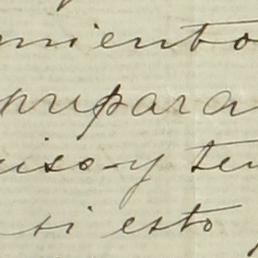 miento
prepara
uiso y ten
si esto